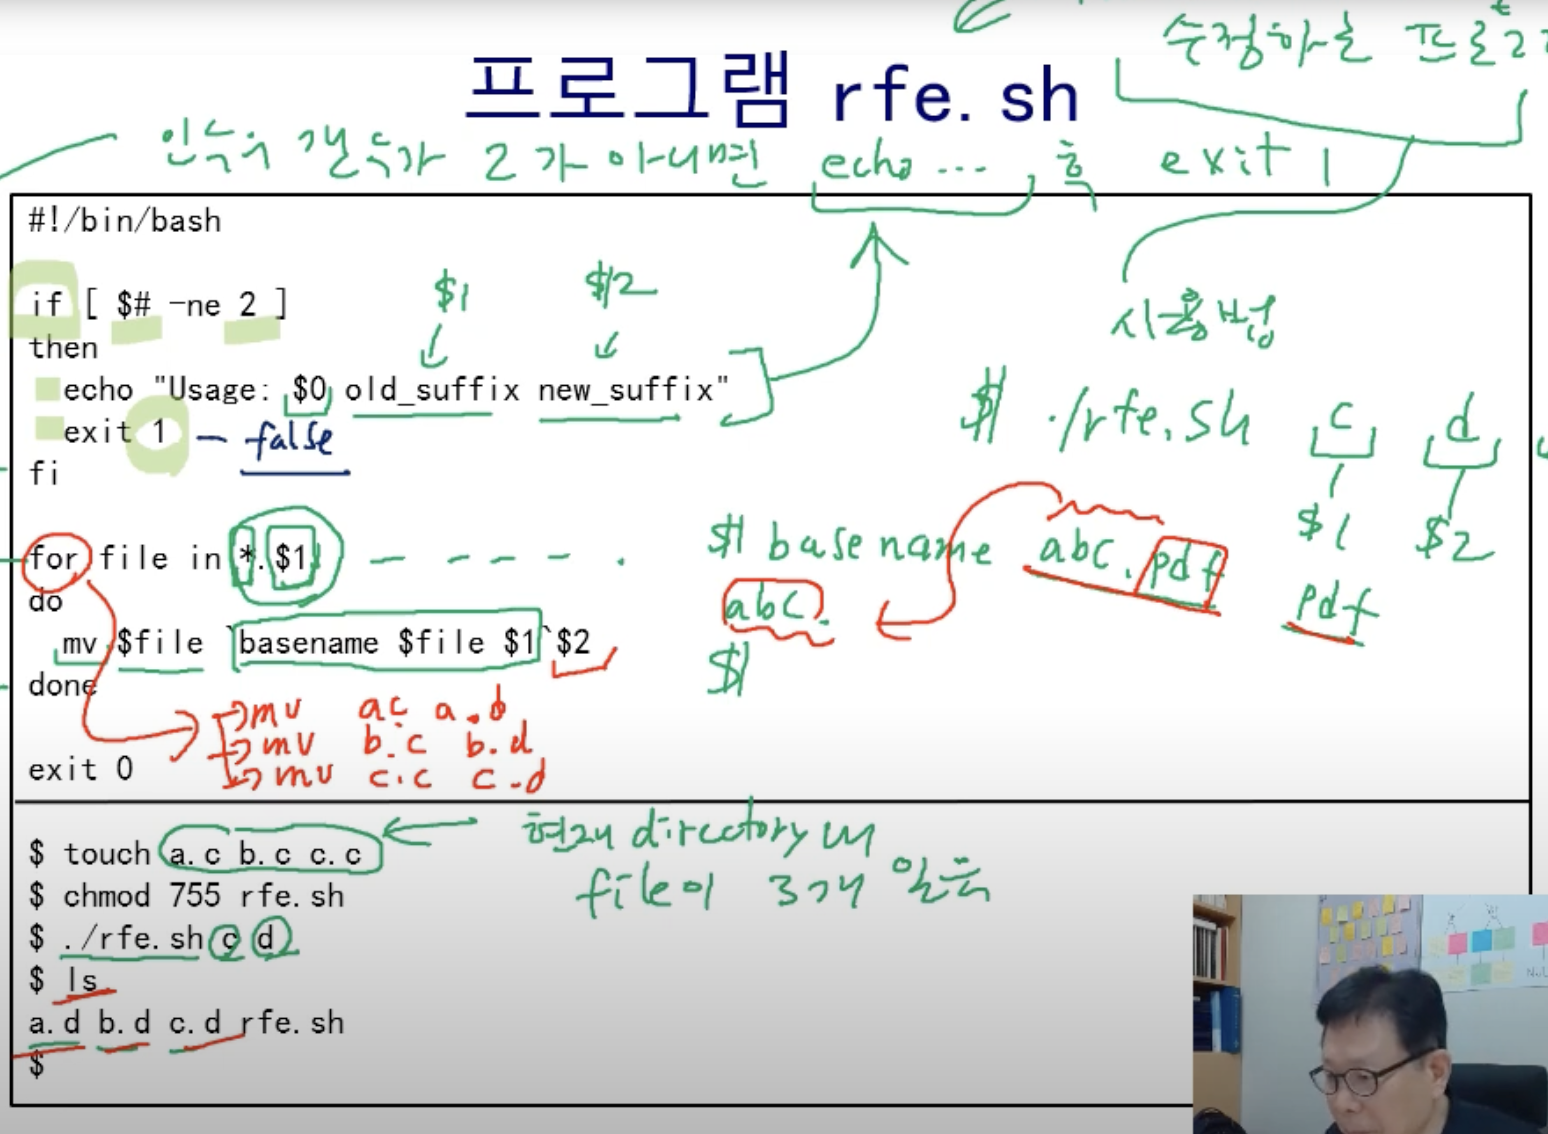 수정하는 프로그
프로그램 rfe.sh
인수의 갯수가 2가 아니면 echo ... 후 exit 1
#!/bin/bash
if [ $# -ne 2 ]
$1 $2
사용법
then
echo "Usage: $0 old_suffix new_suffix"
$ ./rfe.sh c d
exit 1 — false
fi
$1 $2
for file in *.$1
$ basename abc.pdf
pdf
do
abc.
mv $file `basename $file $1`$2
$
done
→mv a.c a.d
→mv b.c b.d
→mv c.c c.d
exit 0
$ touch a.c b.c c.c
현재 directory에
file이 3개 있음
$ chmod 755 rfe.sh
$ ./rfe.sh c d
$ ls
a.d b.d c.d rfe.sh
$